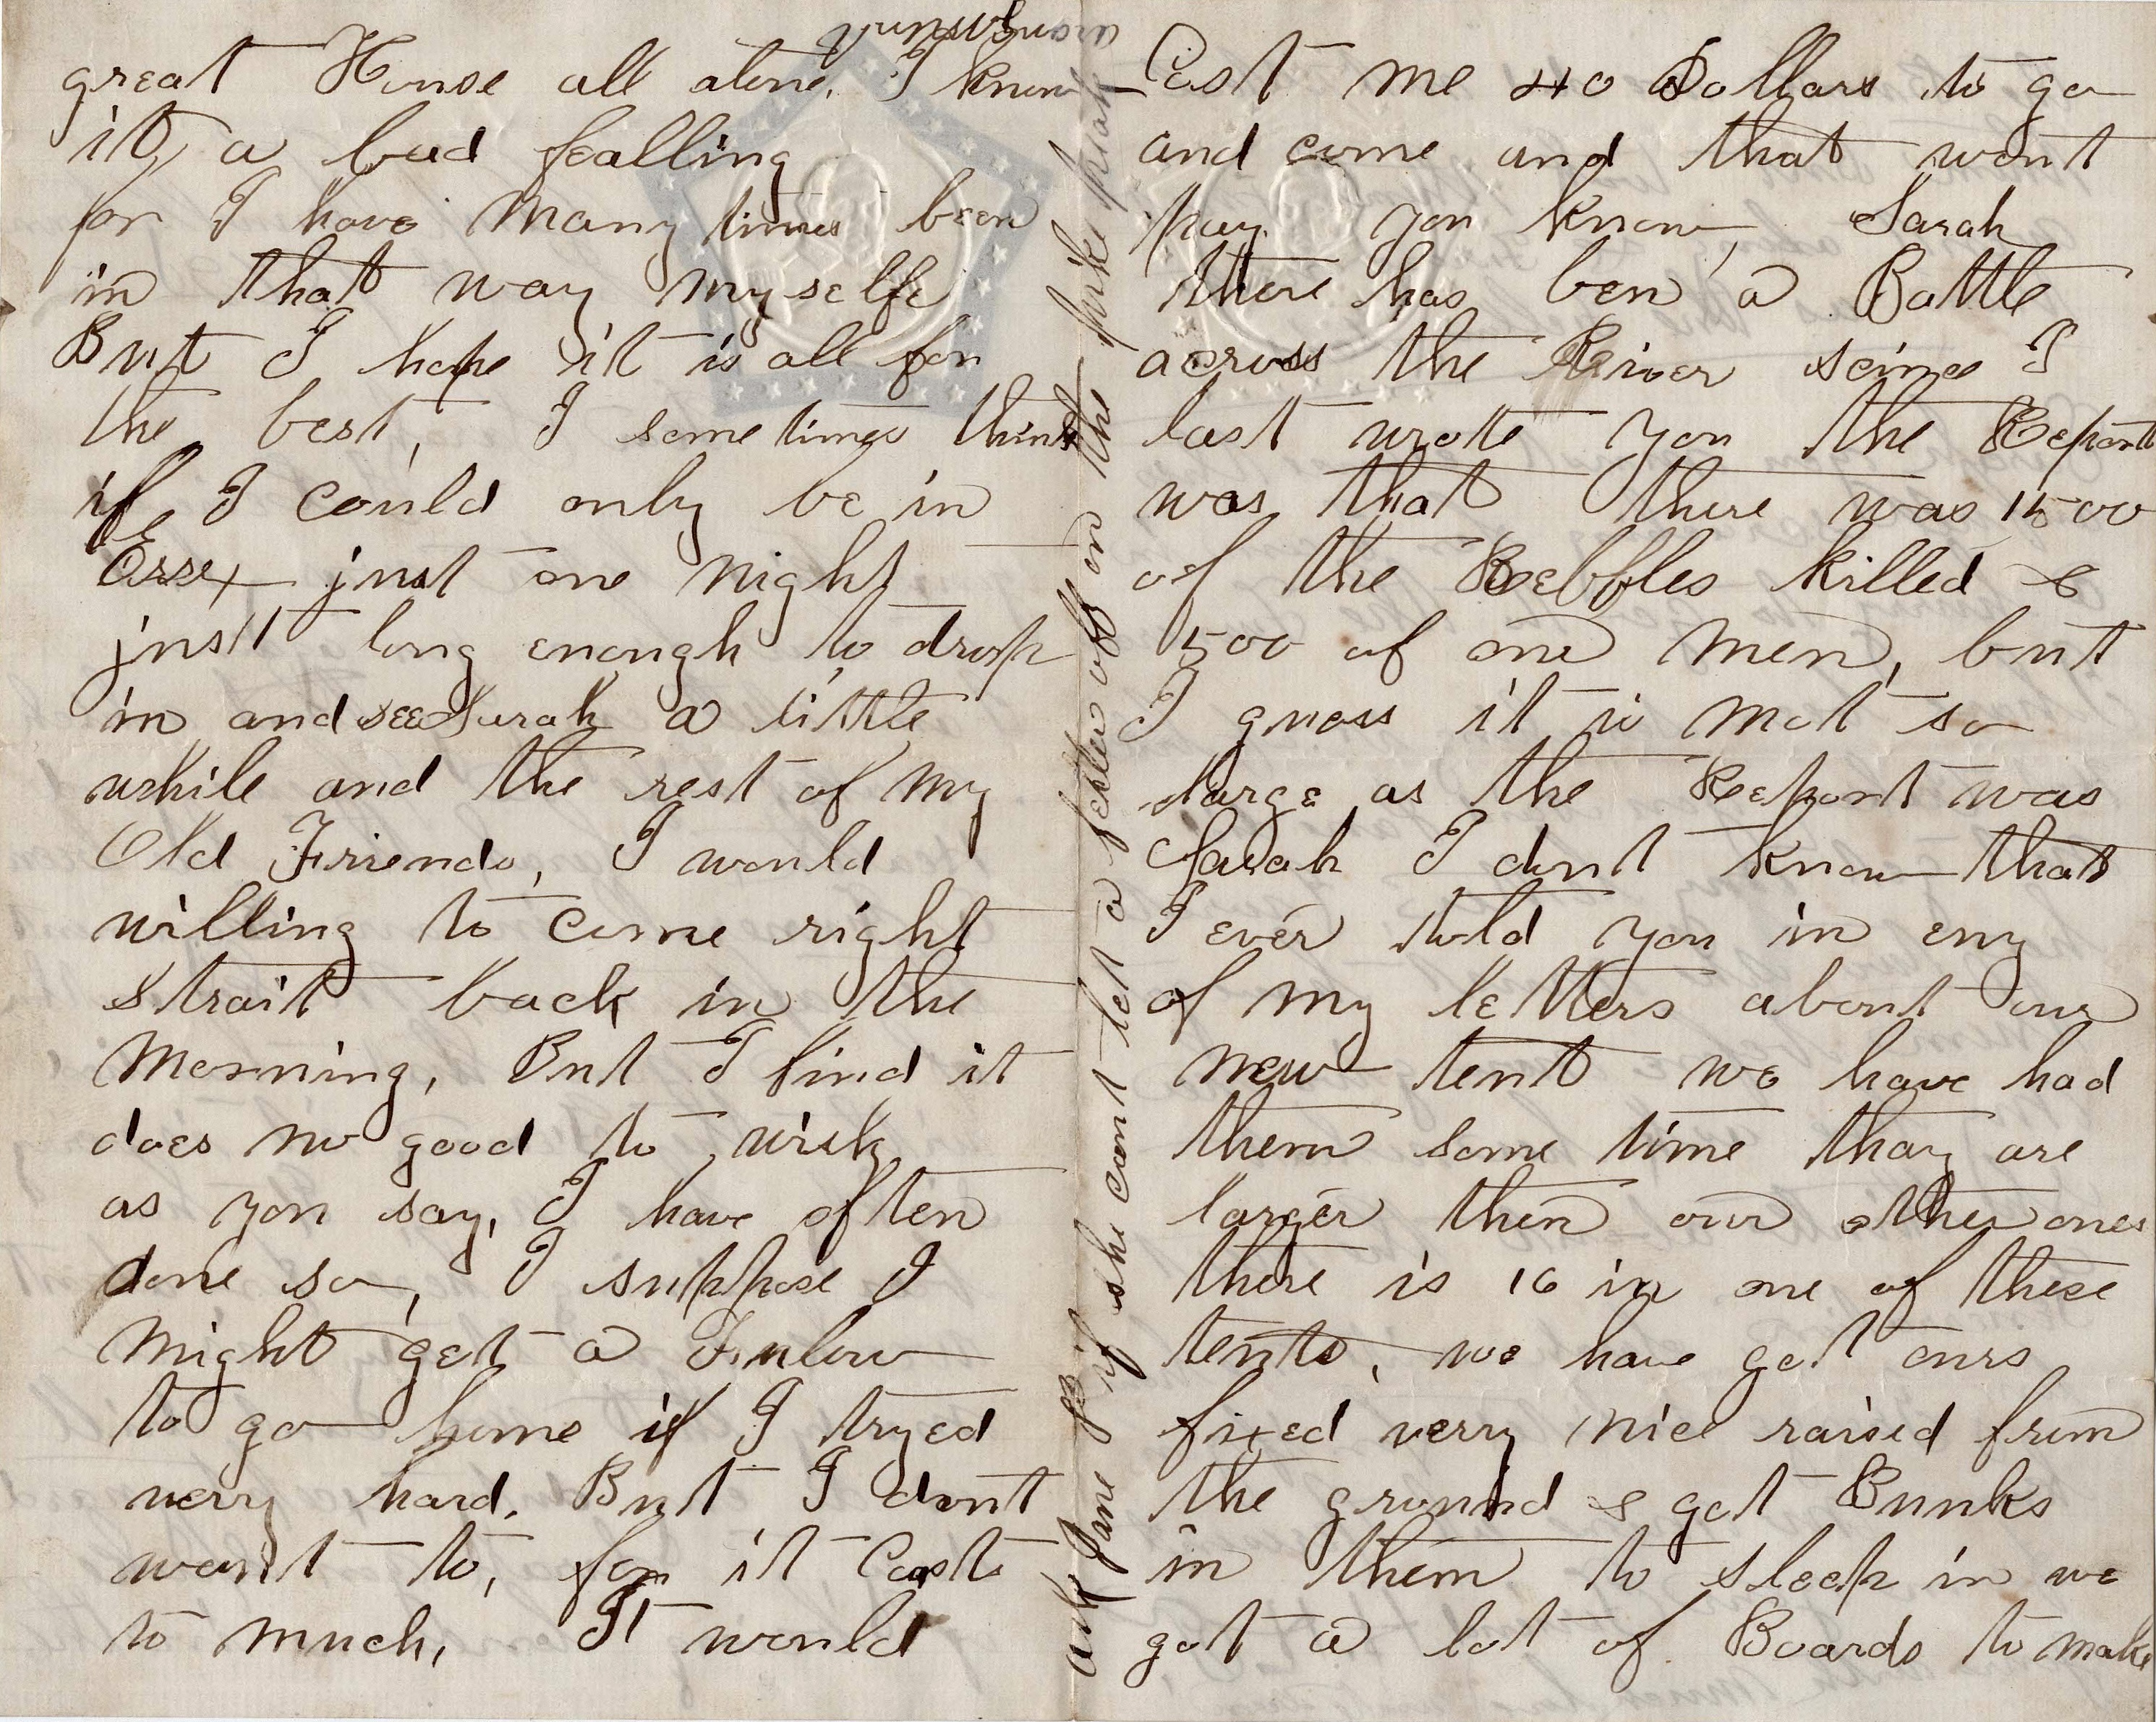 great House all alone, I know
it, a bad fealling
for I have many times been
in that way myselfe
But I hope it is all for
the best, I some times think
if I could only be in
Essex just one night
just long enough to drop
in and see Sarah a little
while and the rest of my
Old Friends, I would
willing to come right
strait back in the
Morning, But I find it
does no good to wish
as you say, I have often
done so, I suppose I
might get a Furlow
to go home if I tryed
very hard. But I dont
want to, for it Cost
to much, It would
Cost me 40 Dollars to go
and come and that wont
pay you know, Sarah
there has ben a Battle
across the River seince I
last wrote you the Report
was that there was 1500
of the Rebbles killed &
500 of our men, but
I guess it is not so
large as the Report was
Sarah I dont know that
I ever told you in eny
of my letters about our
new tent we have had
them some time thay are
larger then our other ones
there is 16 in one of these
tents, we have got ours
fixed verry nice raised from
the ground & got Bunks
in them to sleep in we
got a lot of Boards to make
ask Jane P if she cant let a fester off on the